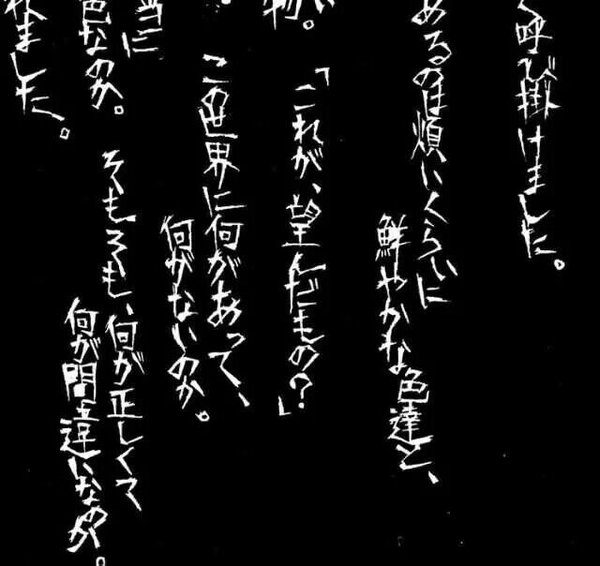 く呼び掛けました。
あるのは煩いくらいに
鮮やかな色達と、
い物。
「これが、望んだもの？」
。
この世界に何があって、
何がないのか。
当に
色なのか。
そもそも、何が正しくて
何が間違いなのか。
れました。